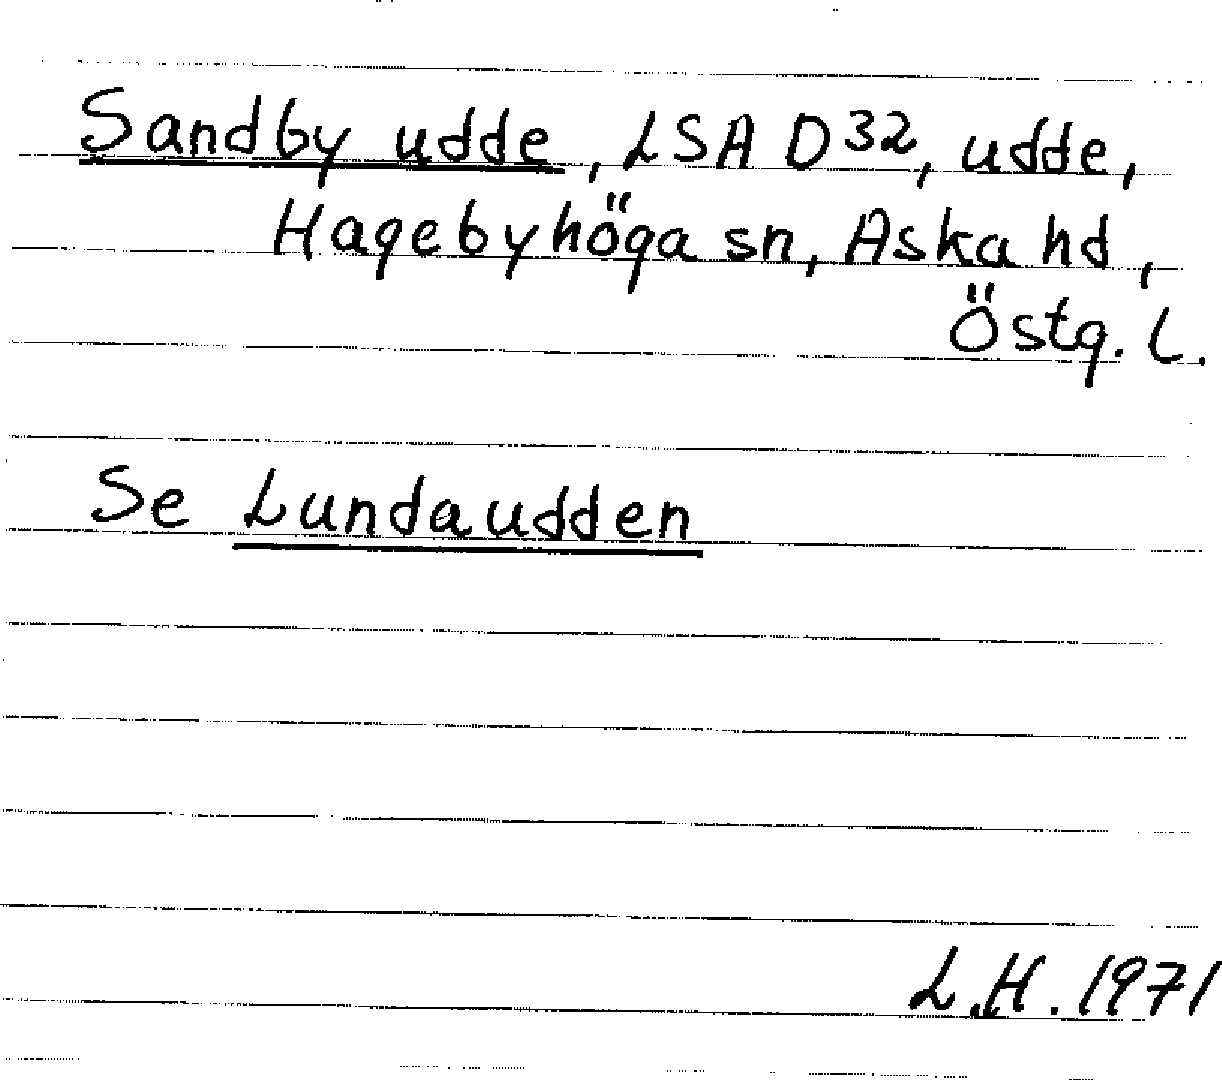 Sandby udde, LSA D32, udde,
Hagebyhöga sn, Aska hd,
Östg. l.
Se Lundaudden
L.H. 1971